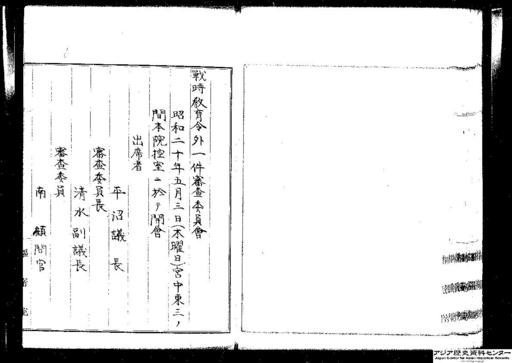 戰時教育令外一件審査委員會
昭和二十年五月三日(木曜日)宮中東三ノ
間本院控室ニ於テ開會
出席者
平沼議長
審査委員長
清水副議長
審査委員
南顧問官
アジア歴史資料センター
Japan Center for Asian Historical Records